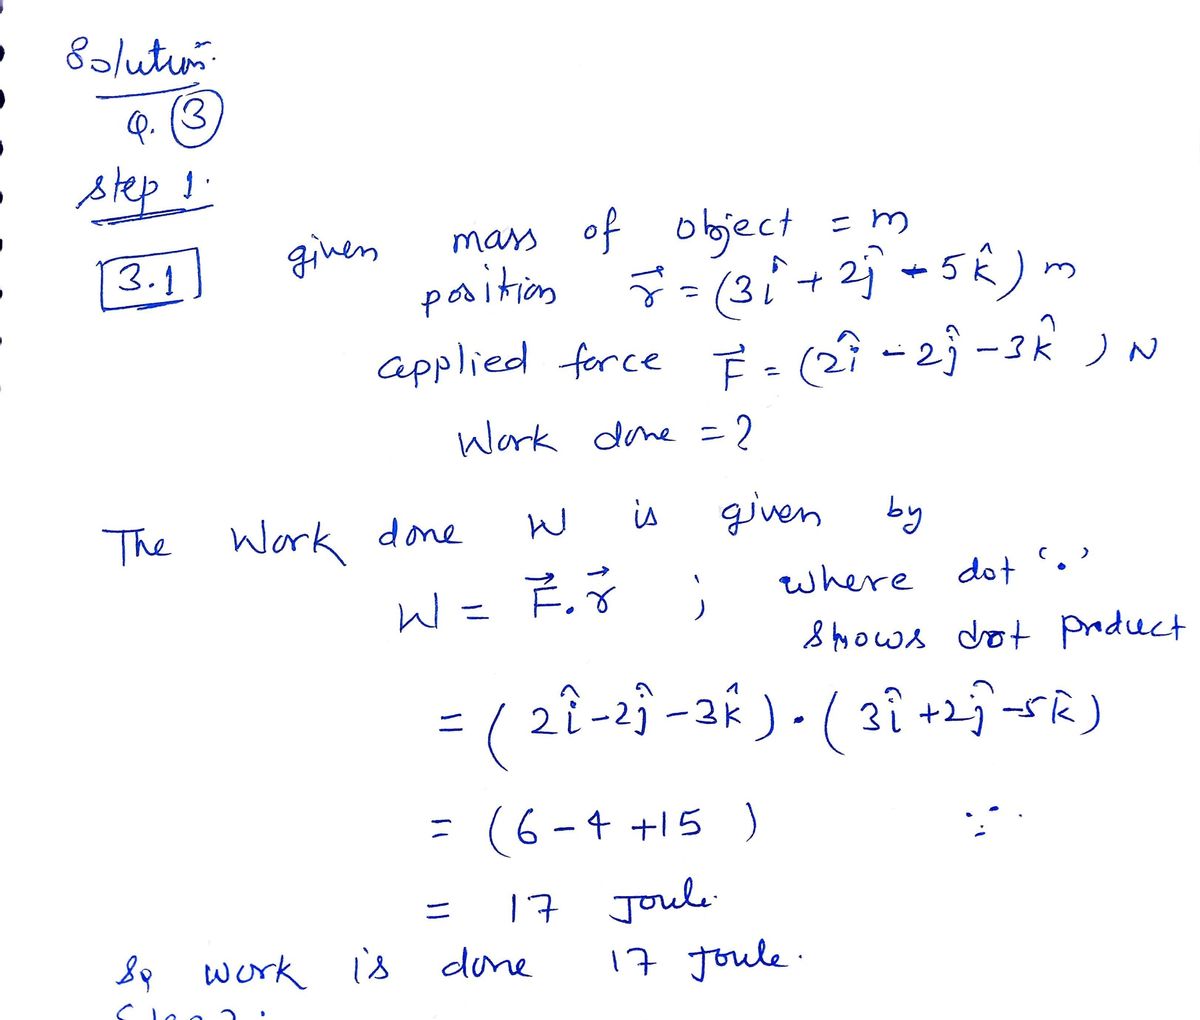 Solution.
Q. 3
Step 1.
3.1 given mass of object = m
position r⃗ = (3î + 2ĵ - 5k̂) m
applied force F⃗ = (2î - 2ĵ - 3k̂) N
Work done = ?
The Work done W is given by
W = F⃗.r⃗ ; where dot '.'
shows dot product
= (2î - 2ĵ - 3k̂) . (3î + 2ĵ - 5k̂)
= (6 - 4 + 15)
= 17 Joule.
So work is done 17 Joule.